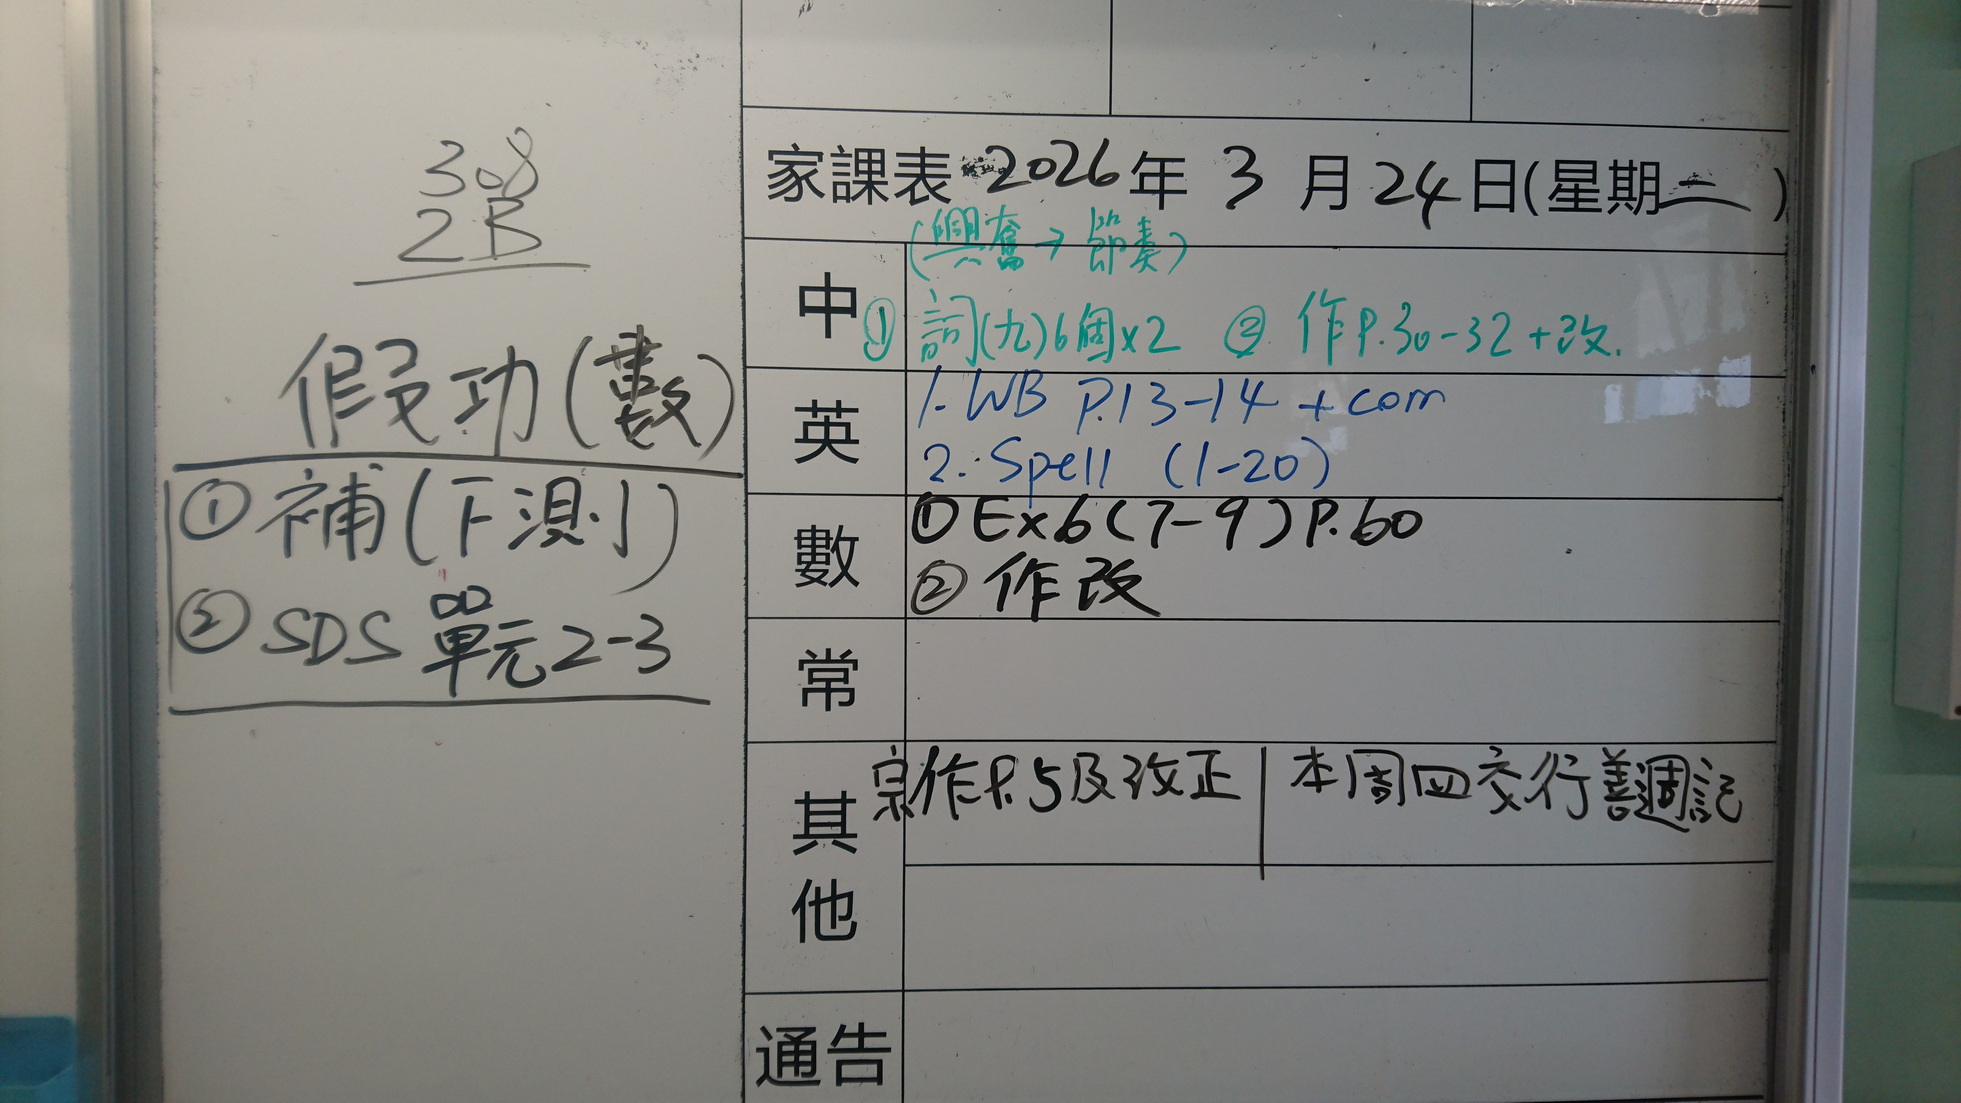 308
2B
假功(數)
①補(下測)
②SDS 單元2-3
家課表 2026年 3 月 24日(星期二)
(興奮→節奏)
中 ①詞(九)6個x2 ② 作P.30-32+改.
英
1. WB P.13-14 + com
2. Spell (1-20)
數
①Ex6(7-9)P.60
②作改
常
其他
宗作P.5及改正 | 本周四交行善週記
通告